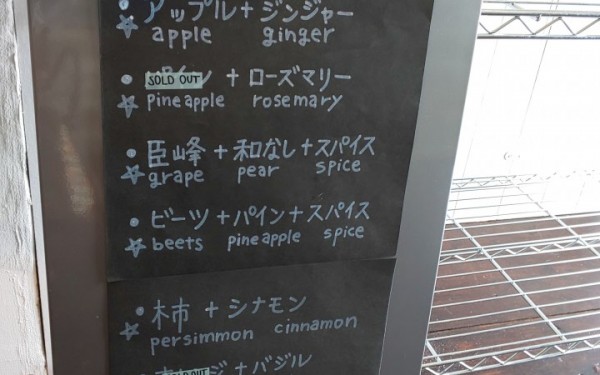 • アップル+ジンジャー
☆ apple ginger
• SOLD OUT + ローズマリー
☆ pineapple rosemary
• 臣峰 + 和なし + スパイス
☆ grape pear spice
• ビーツ + パイン + スパイス
☆ beets pineapple spice
• 柿 + シナモン
☆ persimmon cinnamon
SOLD OUT ジ + バジル